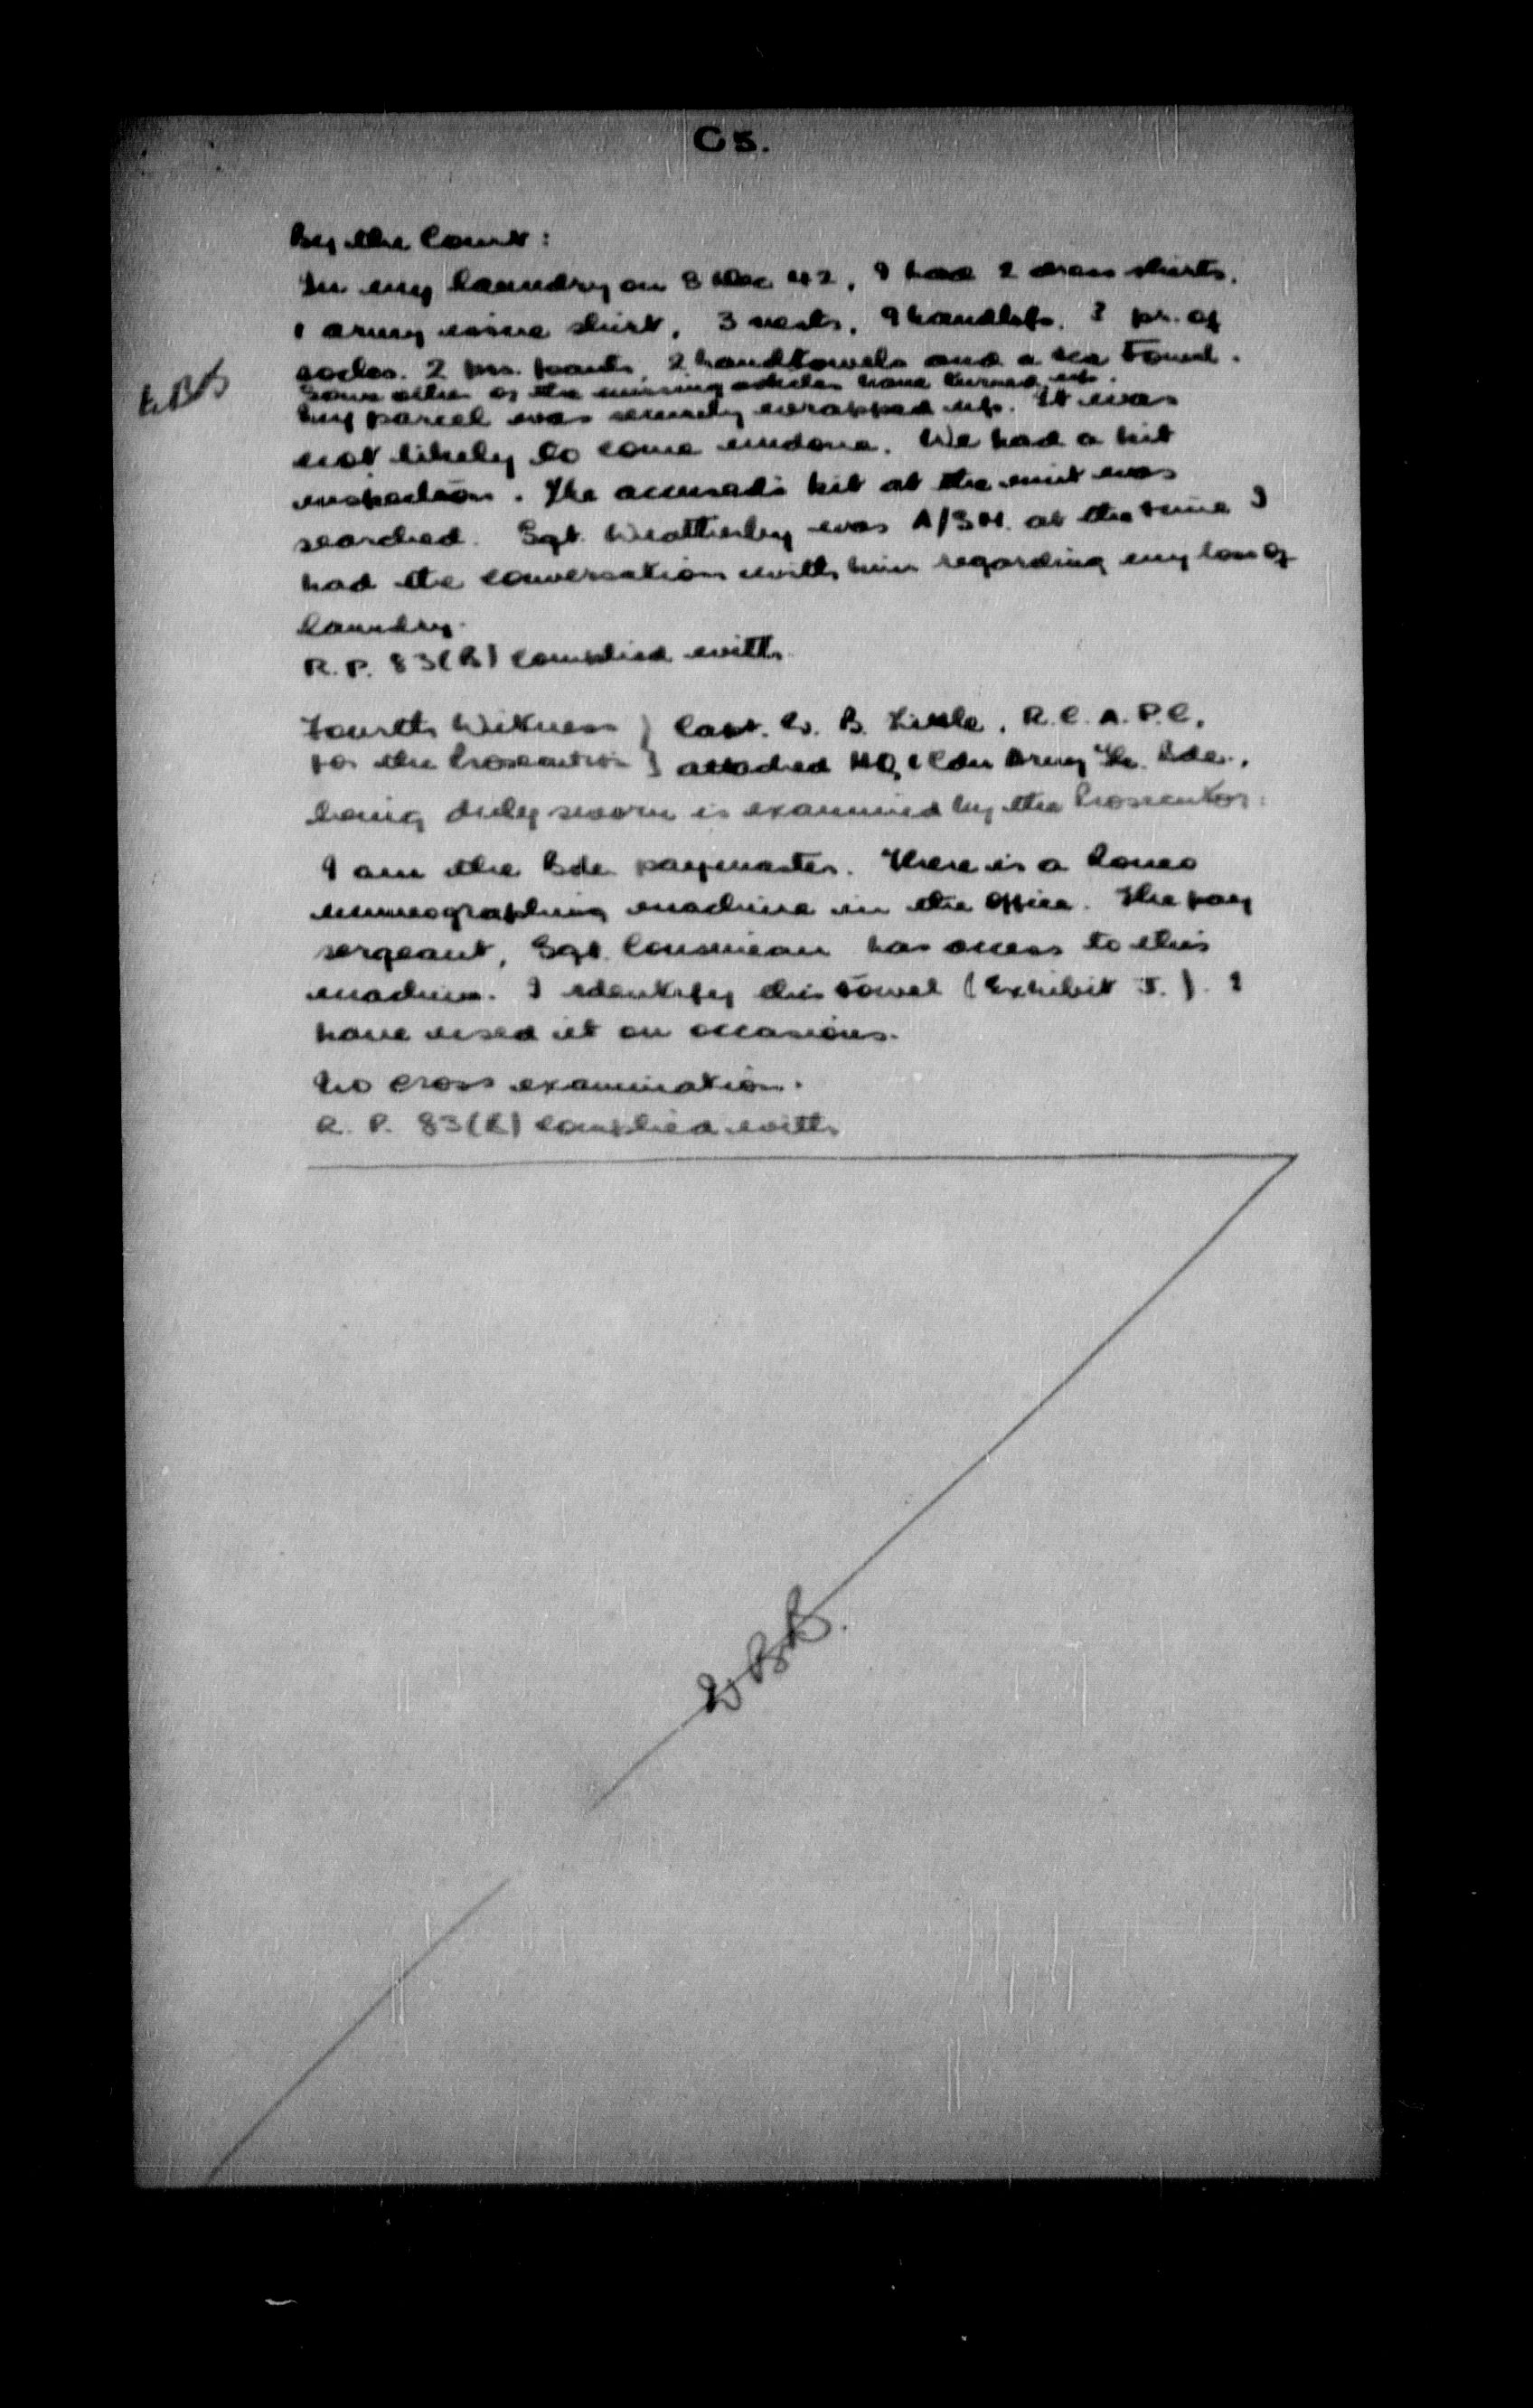 C5.
By the Court:
In my laundry on 8 Dec 42, I had 2 dress shirts,
1 army issue shirt, 3 vests, 9 handkfs, 3 pr. of
socks. 2 prs. pants, 2 handtowels and a tea towel.
Some other of the missing articles have turned up.
My parcel was securely wrapped up. It was
not likely to come undone. We had a kit
inspection. The accused's kit at the unit was
searched. Sgt. Weatherley was A/SM. at the time I
had the conversation with him regarding my loss of
laundry.
R.P. 83(B) complied with
Fourth Witness } Capt. B. Little, R.C.A.P.C.
for the Prosecution } attached HQ, 1 Cdn Army Bde.,
being duly sworn is examined by the Prosecutor:
I am the Bde paymaster. There is a
mimeographing machine in the office. The pay
sergeant, Sgt. Cousineau has access to this
machine. I identify this towel (Exhibit J.). I
have used it on occasions.
No cross examination.
R.P. 83(B) complied with